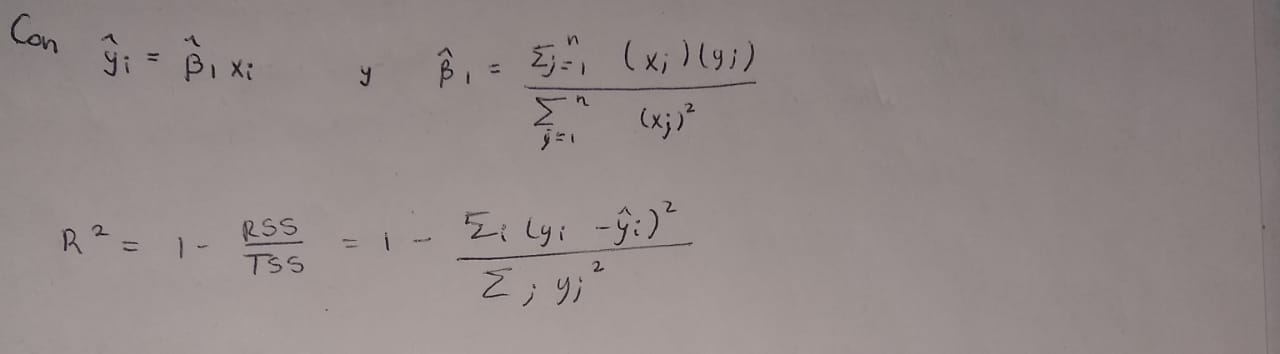 Con ŷᵢ = β̂₁ xᵢ y β̂₁ = Σⱼ₌₁ⁿ (xⱼ)(yⱼ) / Σⱼ₌₁ⁿ (xⱼ)²
R² = 1 - RSS/TSS = 1 - Σᵢ (yᵢ - ŷᵢ)² / Σⱼ yⱼ²